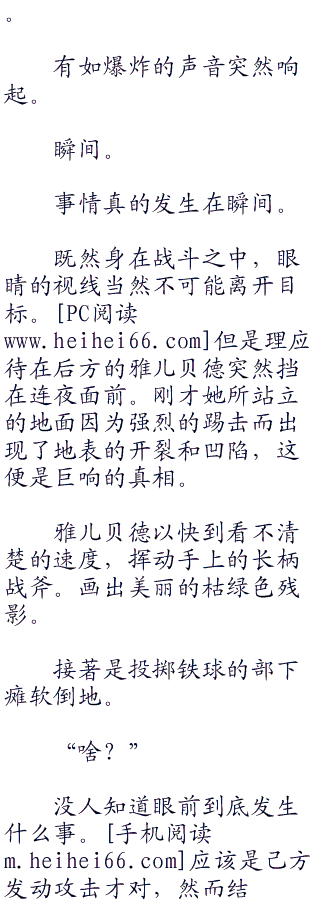 。
有如爆炸的声音突然响
起。
瞬间。
事情真的发生在瞬间。
既然身在战斗之中，眼
睛的视线当然不可能离开目
标。[PC阅读
www.heihei66.com]但是理应
待在后方的雅儿贝德突然挡
在连夜面前。刚才她所站立
的地面因为强烈的踢击而出
现了地表的开裂和凹陷，这
便是巨响的真相。
雅儿贝德以快到看不清
楚的速度，挥动手上的长柄
战斧。画出美丽的枯绿色残
影。
接著是投掷铁球的部下
瘫软倒地。
“啥？”
没人知道眼前到底发生
什么事。[手机阅读
m.heihei66.com]应该是己方
发动攻击才对，然而结